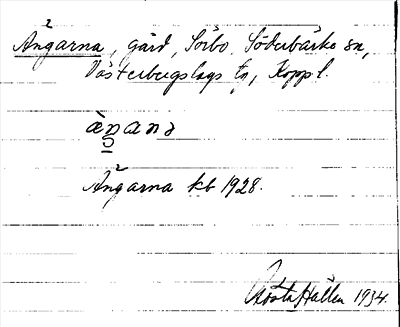 Ängarna, gård, Sörbo, Söderbärke sn,
Västerbergslags tg, Koppl.
àŋana
Ängarna kb 1928.
Gösta Hallén 1934.